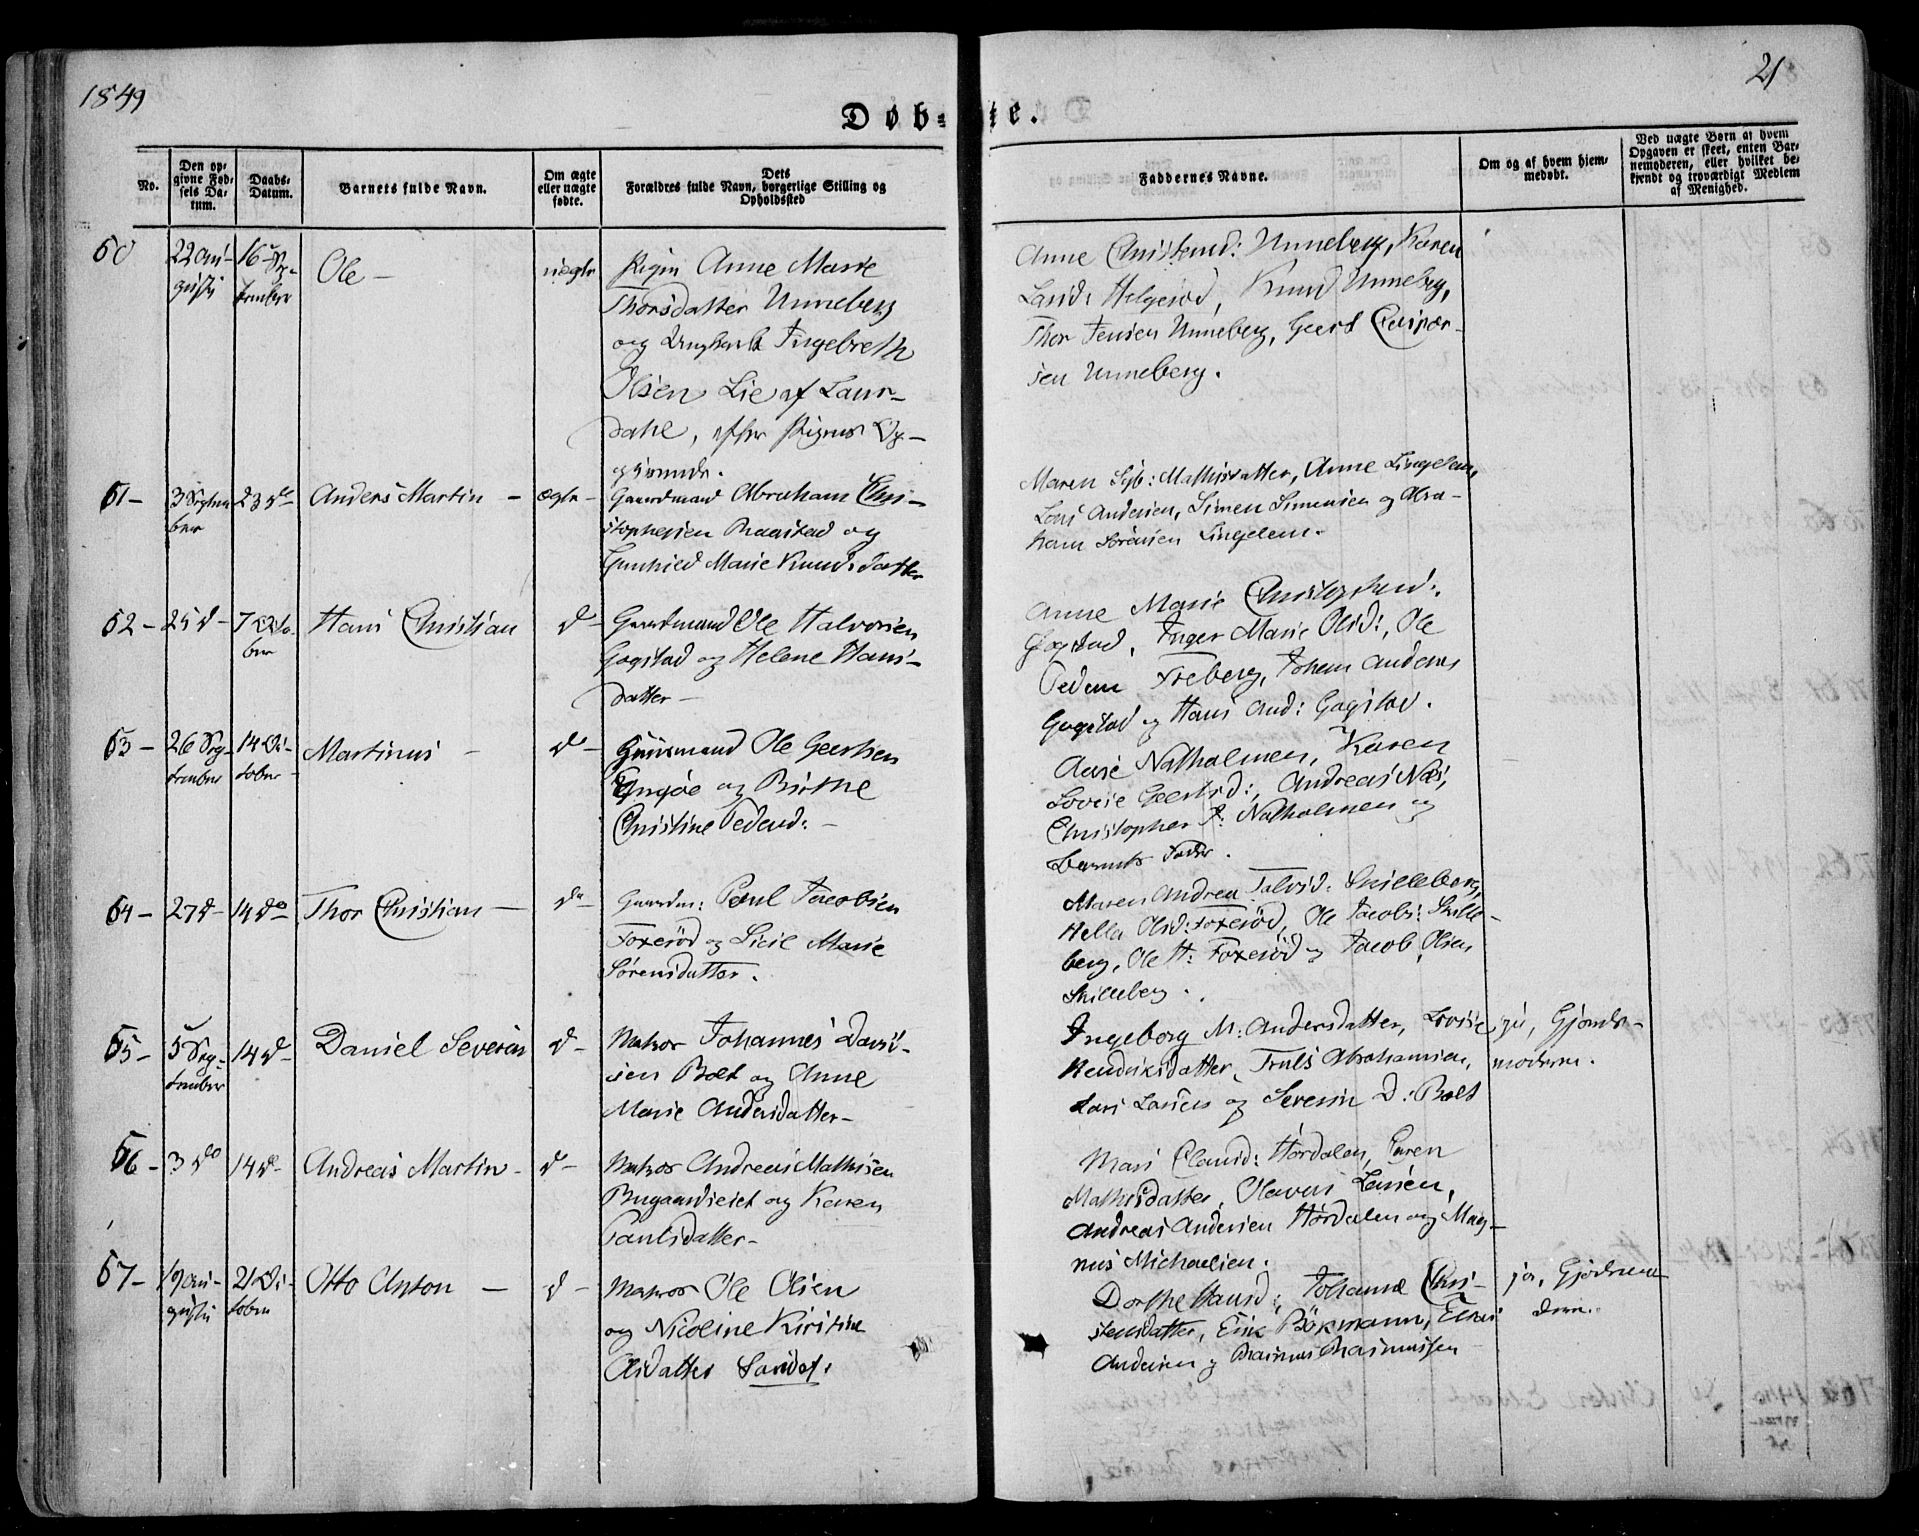 1849
21
Døb-te.
No.
Den op-
givne Fød-
sels Da-
tum.
Daabs-
Datum.
Barnets fulde Navn.
Om ægte
eller uægte
fødte.
Dets
Forældres fulde Navn, borgerlige Stilling og
Opholdssted
Faddernes Navne.
Om og af hvem hjem-
medøbt.
Ved uægte Børn af hvem
Opgaven er skeet, enten Bar-
nemoderen, eller hvilket be-
kjendt og troværdigt Medlem
af Menighed.
50
22 Au-
gusti
16 Sep-
tember
Ole -
uægte
Pigen Anne Marie
Thorsdatter Unneberg
og Ungkarl Ingebreth
Olsen Lie af Laur-
dahl, efter Pigens Op-
givende.
Anne Christensd: Unneberg, Karen
Larsd: Helgerød, Knud Unneberg,
Thor Jensen Unneberg, Geert Caspar-
sen Unneberg.
51 -
3 Septem
ber
23 do
Anders Martin -
ægte -
Gaardmand Abraham Chri-
stophersen Raastad og
Gunhild Marie Knudsdatter
Maren Sib: Mathisdatter, Anne Lingelem,
Lars Andersen, Simen Simensen og Abra-
ham Sørensen Lingelem.
52 -
25 d -
7 Octo-
ber
Hans Christian
d -
Gaardmand Ole Halvorsen
Gogstad og Helene Hans-
datter -
Anne Marie Christophersd:
Gogstad, Inger Marie Olsd:, Ole
Pedersen Freberg, Johan Anders
Gogstad og Hans And: Gogstad.
53 -
26 Sep-
tember
14 Oc-
tober -
Martinus -
d -
Huusmand Ole Geertsen
Engøe og Birthe
Christine Pedersd: -
Aase Natholmen, Karen
Lovise Geertsd:, Andreas Næs,
Christopher P: Natholmen og
Barnets Fader.
54 -
27 d -
14 do
Thor Christian -
do
Gaardm: Poul Jacobsen
Foxerød og Sicil Marie
Sørensdatter.
Maren Andrea Talvsd: Skilleberg,
Hella Olsd: Foxerød, Ole Jacobs: Skille-
berg, Ole H: Foxerød og Jacob Olsen
Skilleberg.
55 -
5 Sep-
tember
14 d -
Daniel Severin
d -
Matros Johannes David-
sen Bolt og Anne
Marie Andersdatter -
Ingeborg M: Andersdatter, Lovise
Hendriksdatter, Truls Abrahamsen,
Lars Larsen og Severin D: Bolt
ja, Gjords-
moderen.
56 -
3 do
14 do -
Andreas Martin -
d -
Matros Andreas Mathisen
Bugaardseiet og Karen
Paulsdatter -
Mari Clausd: Hørdalen, Karen
Mathisdatter, Olaves Larsen,
Andreas Andersen Hørdalen og Mag-
nus Michaelsen.
57 -
19 Au-
gusti
21 Oc-
tober
Otto Anton -
d -
Matros Ole Olsen
og Nicoline Kirstine
Olsdatter Sandef:
Dorthe Hansd:, Johanne Chri-
stensdatter, Erik Bökmann, Elias
Andersen og Rasmus Rasmussen
ja, Gjordemo-
deren.